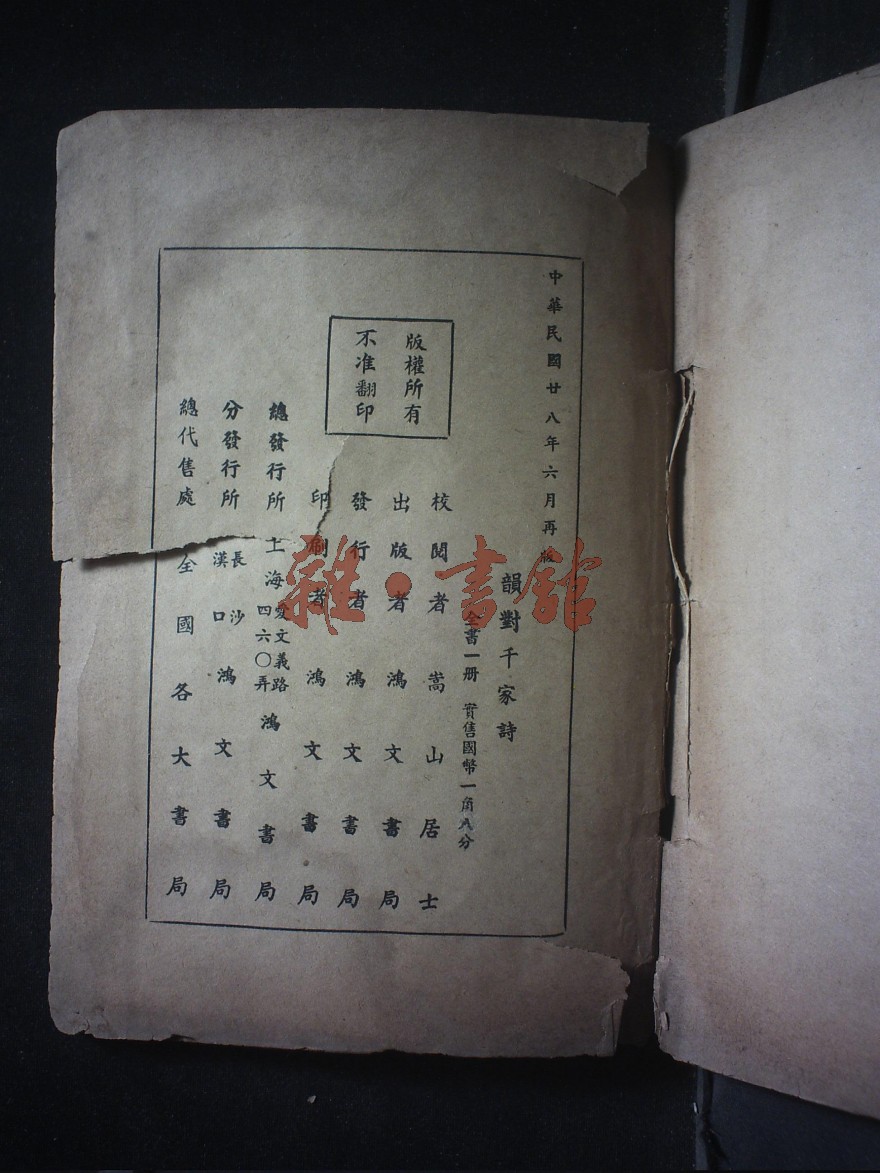 中華民國廿八年六月再版
韻對千家詩
全書一册 實售國幣一角八分
版權所有
不准翻印
校閱者 嵩山居士
出版者 鴻文書局
發行者 鴻文書局
印刷者 鴻文書局
總發行所 上海愛文義路四六〇弄 鴻文書局
分發行所 長沙 漢口 鴻文書局
總代售處 全國各大書局
雜·書館